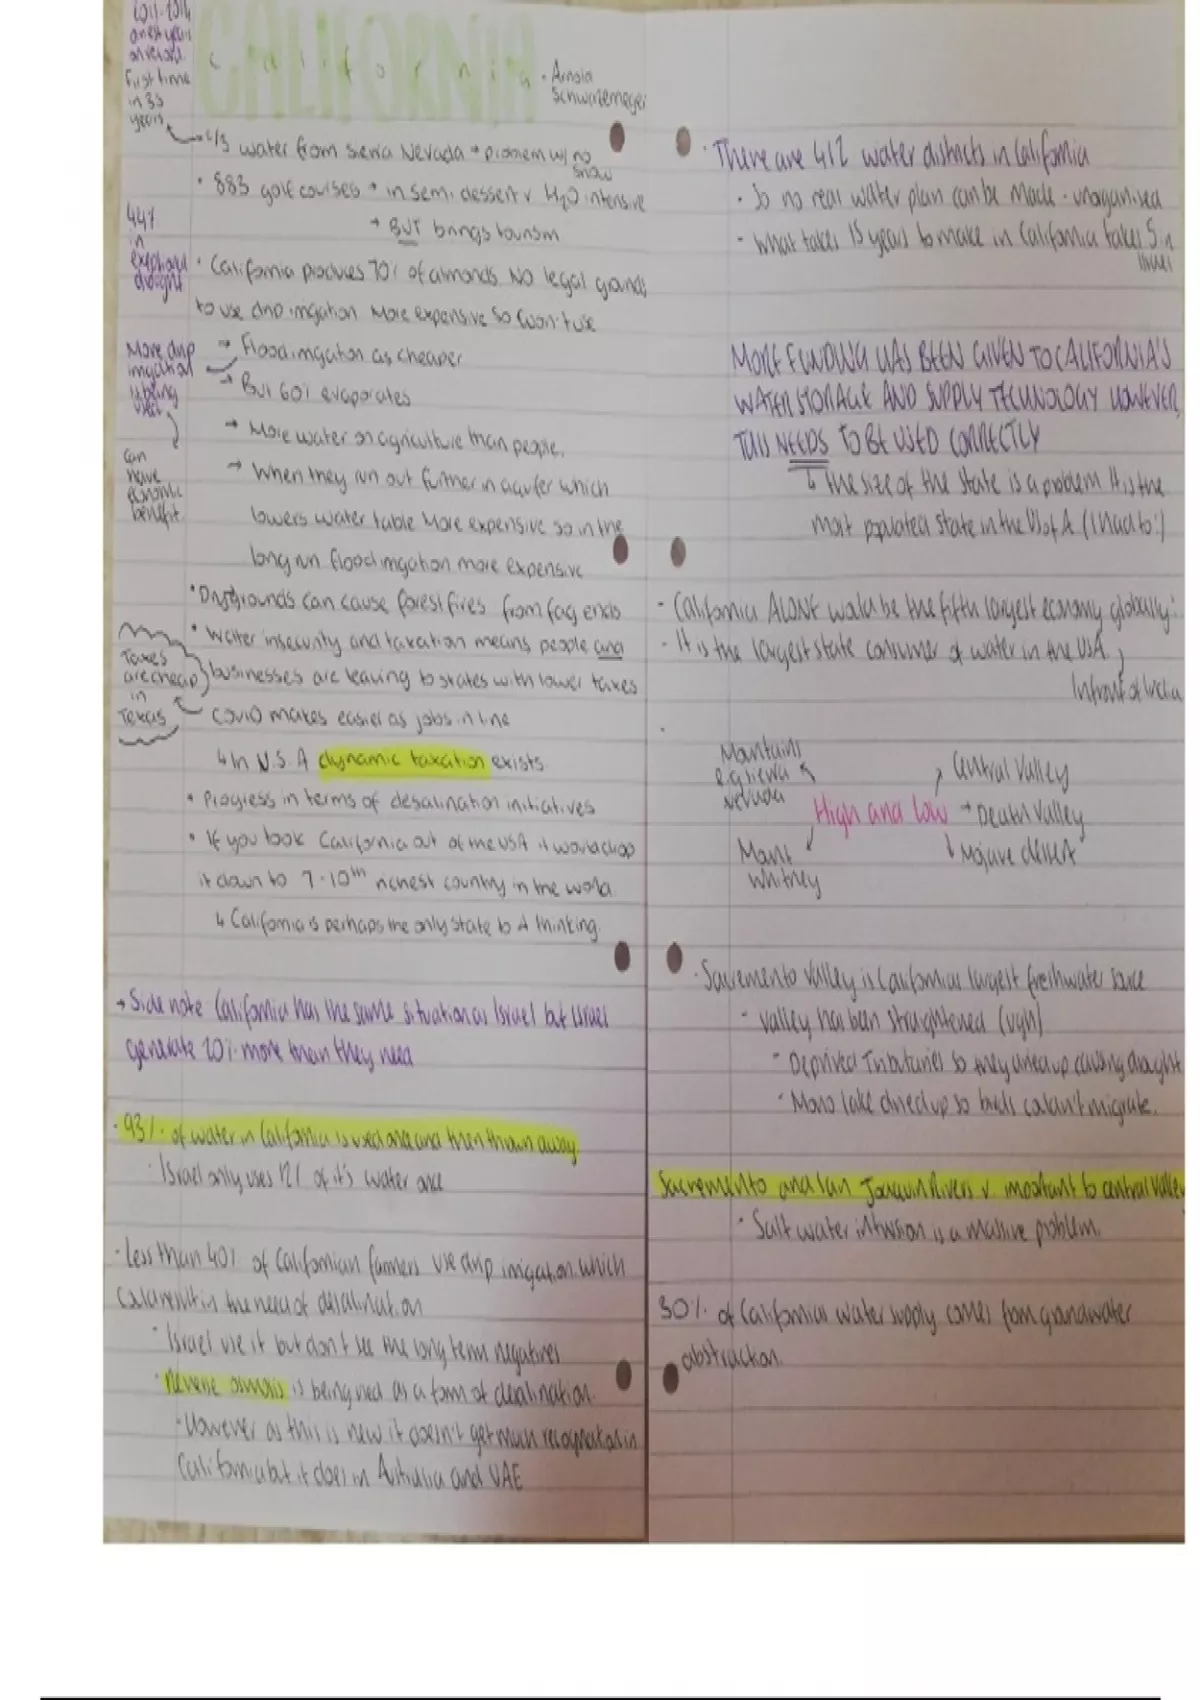 2011-2014
driest years
on record
First time
in 33
years
CALIFORNIA
California
· Arnold
Schwarzenegger
water from Sierra Nevada → problem w/ no
snow
· 883 golf courses → in semi-dessert v H₂O intensive
→ BUT brings tourism
44%
in
exceptional
drought
· California produces 70% of almonds. No legal grounds
to use drip irrigation More expensive so won't use
More drip
irrigation
is being
used
→ Flood irrigation as cheaper
→ But 60% evaporates
→ More water on agriculture than people.
Can
have
economic
benefit
→ When they run out further in aquifer which
lowers water table More expensive so in the
long run flood irrigation more expensive
· Dry grounds can cause forest fires from fag ends
· Water insecurity and taxation means people and
businesses are leaving to states with lower taxes
Taxes
are cheap
in
Texas
COVID makes easier as jobs in line
↳ In U.S.A dynamic taxation exists
· Progress in terms of desalination initiatives
· If you took California out of the USA it would drop
it down to 7-10th richest country in the world
↳ California is perhaps the only state to thinking.
→ Side note California has the same situation as Israel but Israel
generate 20% more than they need
· 93% of water in California is used once and then thrown away.
· Israel only uses 12% of it's water once
· Less than 40% of Californian farmers use drip irrigation which
could result in the need of desalination
· Israel use it but don't see the long term negatives
· Reverse osmosis is being used as a form of desalination.
· However as this is new it doesn't get much recognition in
California but it does in Australia and UAE
· There are 412 water districts in California
· So no real water plan can be made - unorganised
- What takes 15 years to make in California takes 5 in
Israel
MORE FUNDING HAS BEEN GIVEN TO CALIFORNIA'S
WATER STORAGE AND SUPPLY TECHNOLOGY HOWEVER,
THIS NEEDS TO BE USED CORRECTLY
↳ The size of the state is a problem It is the
most populated state in the US of A (I had to :)
- California ALONE would be the fifth largest economy globally
- It is the largest state consumer of water in the USA
Infront of India
Mountains
e.g Sierra
Nevada
Central Valley
High and low → Death Valley
Mojave desert
Mount
Whitney
· Sacremento Valley is Californias largest freshwater source
- Valley has been straightened (ugh)
- Deprived Tributaries so they dried up causing drought
- Mono lake dried up so birds couldn't migrate.
Sacremento and San Joaquin Rivers v. important to central valley
· Salt water intrusion is a massive problem.
30% of Californias water supply comes from groundwater
abstraction.